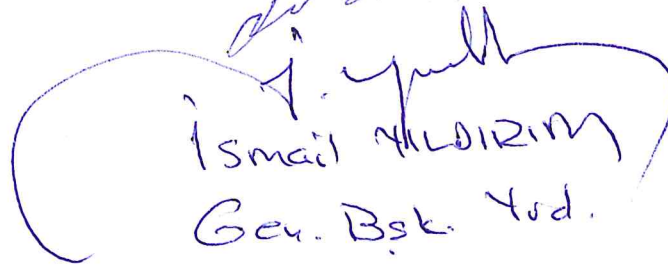 İsmail YILDIRIM
Gen. Bşk. Yrd.